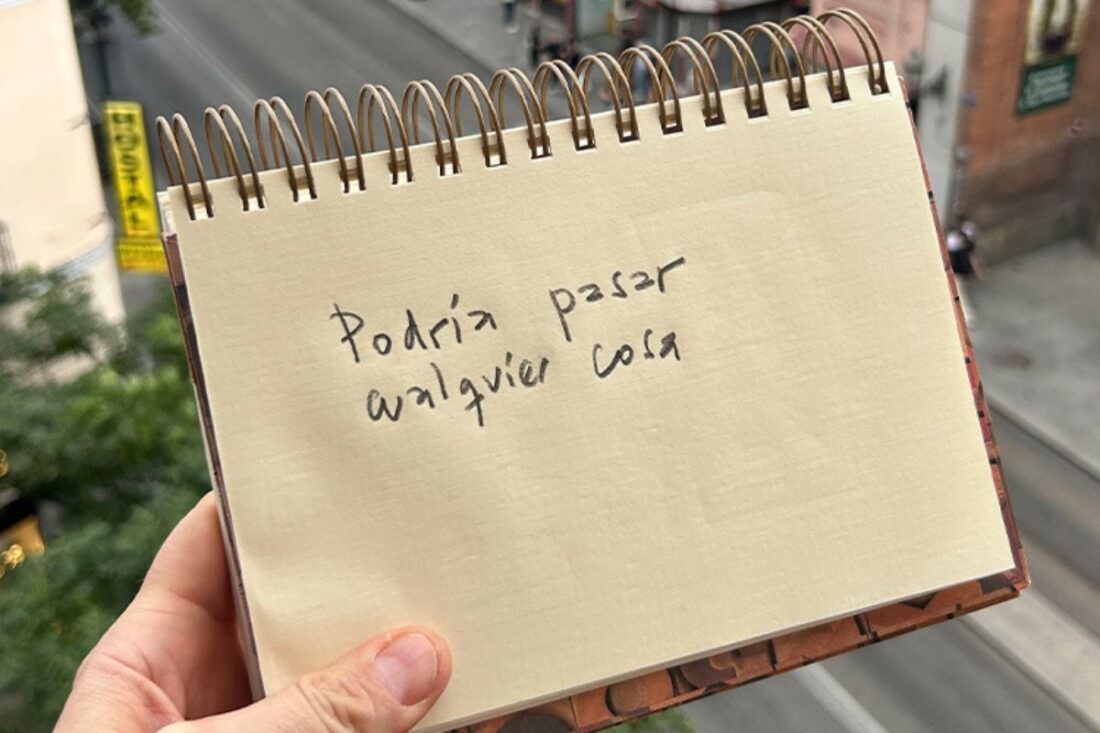 HOSTAL
Podría pasar
cualquier cosa